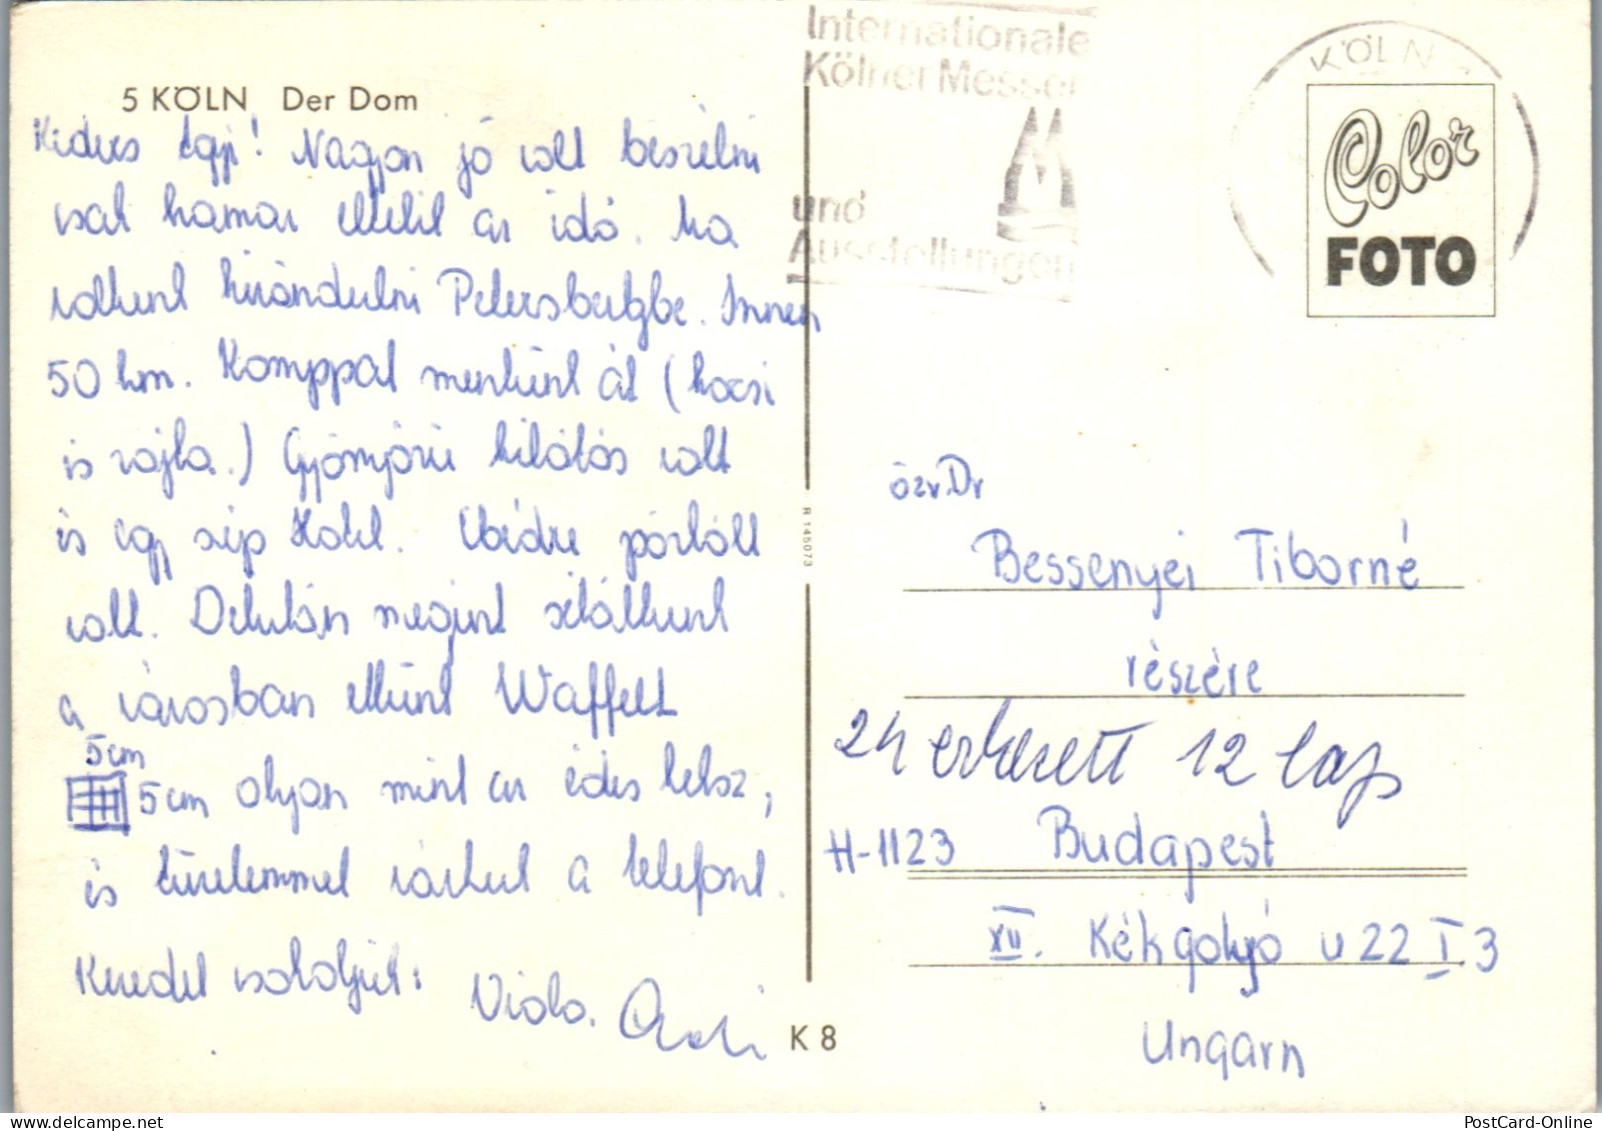 Internationale
Kölner Messen
und
Ausstellungen
KÖLN
Color
FOTO
5 KÖLN Der Dom
Kedves Egyi! Nagyon jó volt beszélni
csak hamar eltelik az idő. Ma
voltunk kirándulni Petersbergbe. Innen
50 km. Komppal mentünk át (kocsi
is rajta.) Gyönyörű kilátás volt
és egy szép Hotel. Ebédre pörkölt
volt. Délután megint sétáltunk
a városban ettünk Waffelt
5cm
5 cm olyan mint az édes keksz,
és türelemmel várjuk a telefont.
Kezedet csókoljuk:
Viola.
R 145073
K 8
özv. Dr
Bessenyei Tiborné
részére
24 érkezett 12 lap
H-1123 Budapest
XII. Kékgolyó u 22 I. 3
Ungarn
PostCard-Online